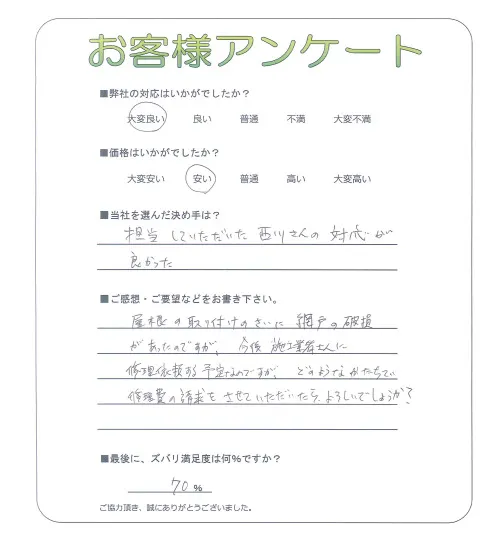 お客様アンケート
■弊社の対応はいかがでしたか？
大変良い 良い 普通 不満 大変不満
■価格はいかがでしたか？
大変安い 安い 普通 高い 大変高い
■当社を選んだ決め手は？
担当していただいた西川さんの対応が
良かった
■ご感想・ご要望などをお書き下さい。
屋根の取り付けのさいに網戸の破損
があったのですが、今後施工業者さんに
修理依頼する予定なのですが、どのようなかたちで
修理費の請求をさせていただいたら、よろしいでしょうか？
■最後に、ズバリ満足度は何%ですか？
70 %
ご協力頂き、誠にありがとうございました。